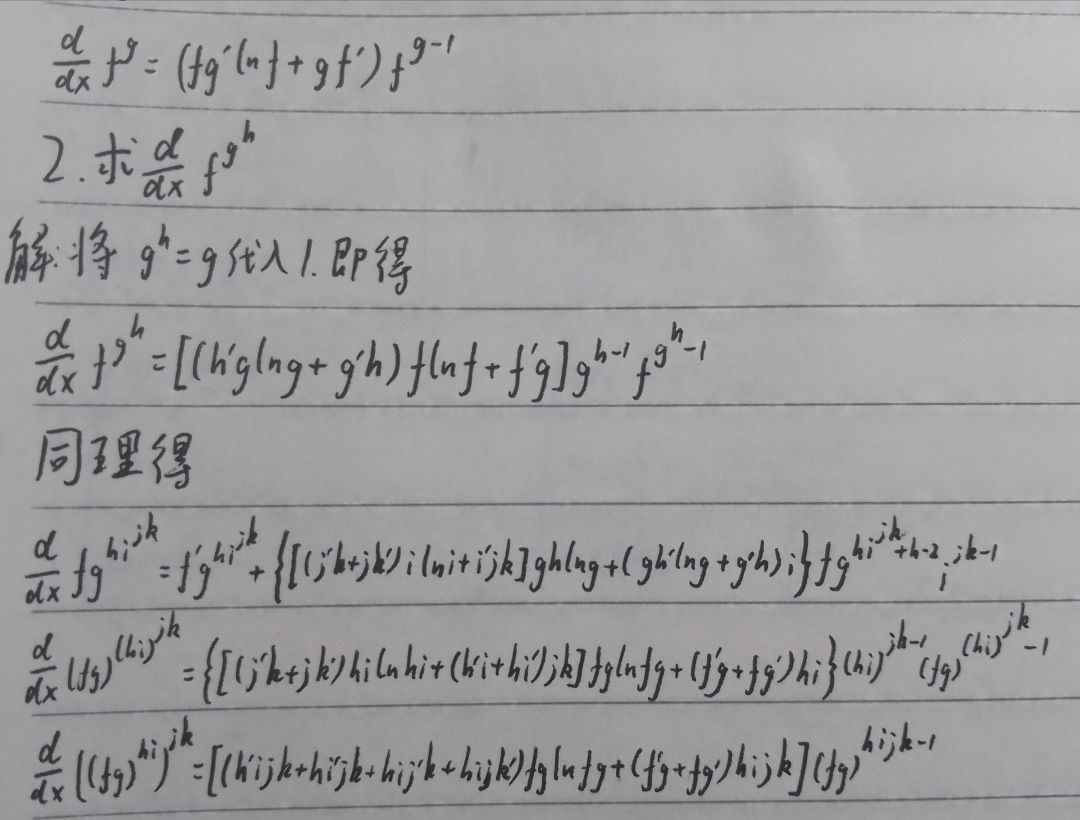 d/dx f^g = (fg′lnf + gf′) f^(g-1)
2. 求 d/dx f^(g^h)
解: 将 g^h = g 代入 1. 即得
d/dx f^(g^h) = [(h′g lng + g′h) f lnf + f′g] g^(h-1) f^(g^h - 1)
同理得
d/dx fg^(hi^(jk)) = f′g^(hi^(jk)) + {[(j′k+jk′) i lni + i′jk] gh lng + (gh′lng + g′h) i} fg^(hi^(jk) + h-2) i^(jk-1)
d/dx (fg)^((hi)^(jk)) = {[(j′k+jk′) hi ln hi + (h′i+hi′) jk] fg ln fg + (f′g+fg′) hi} (hi)^(jk-1) (fg)^((hi)^(jk) - 1)
d/dx ((fg)^(hi))^(jk) = [(h′ijk+hi′jk+hij′k+hijk′) fg ln fg + (f′g+fg′) hijk] (fg)^(hijk-1)